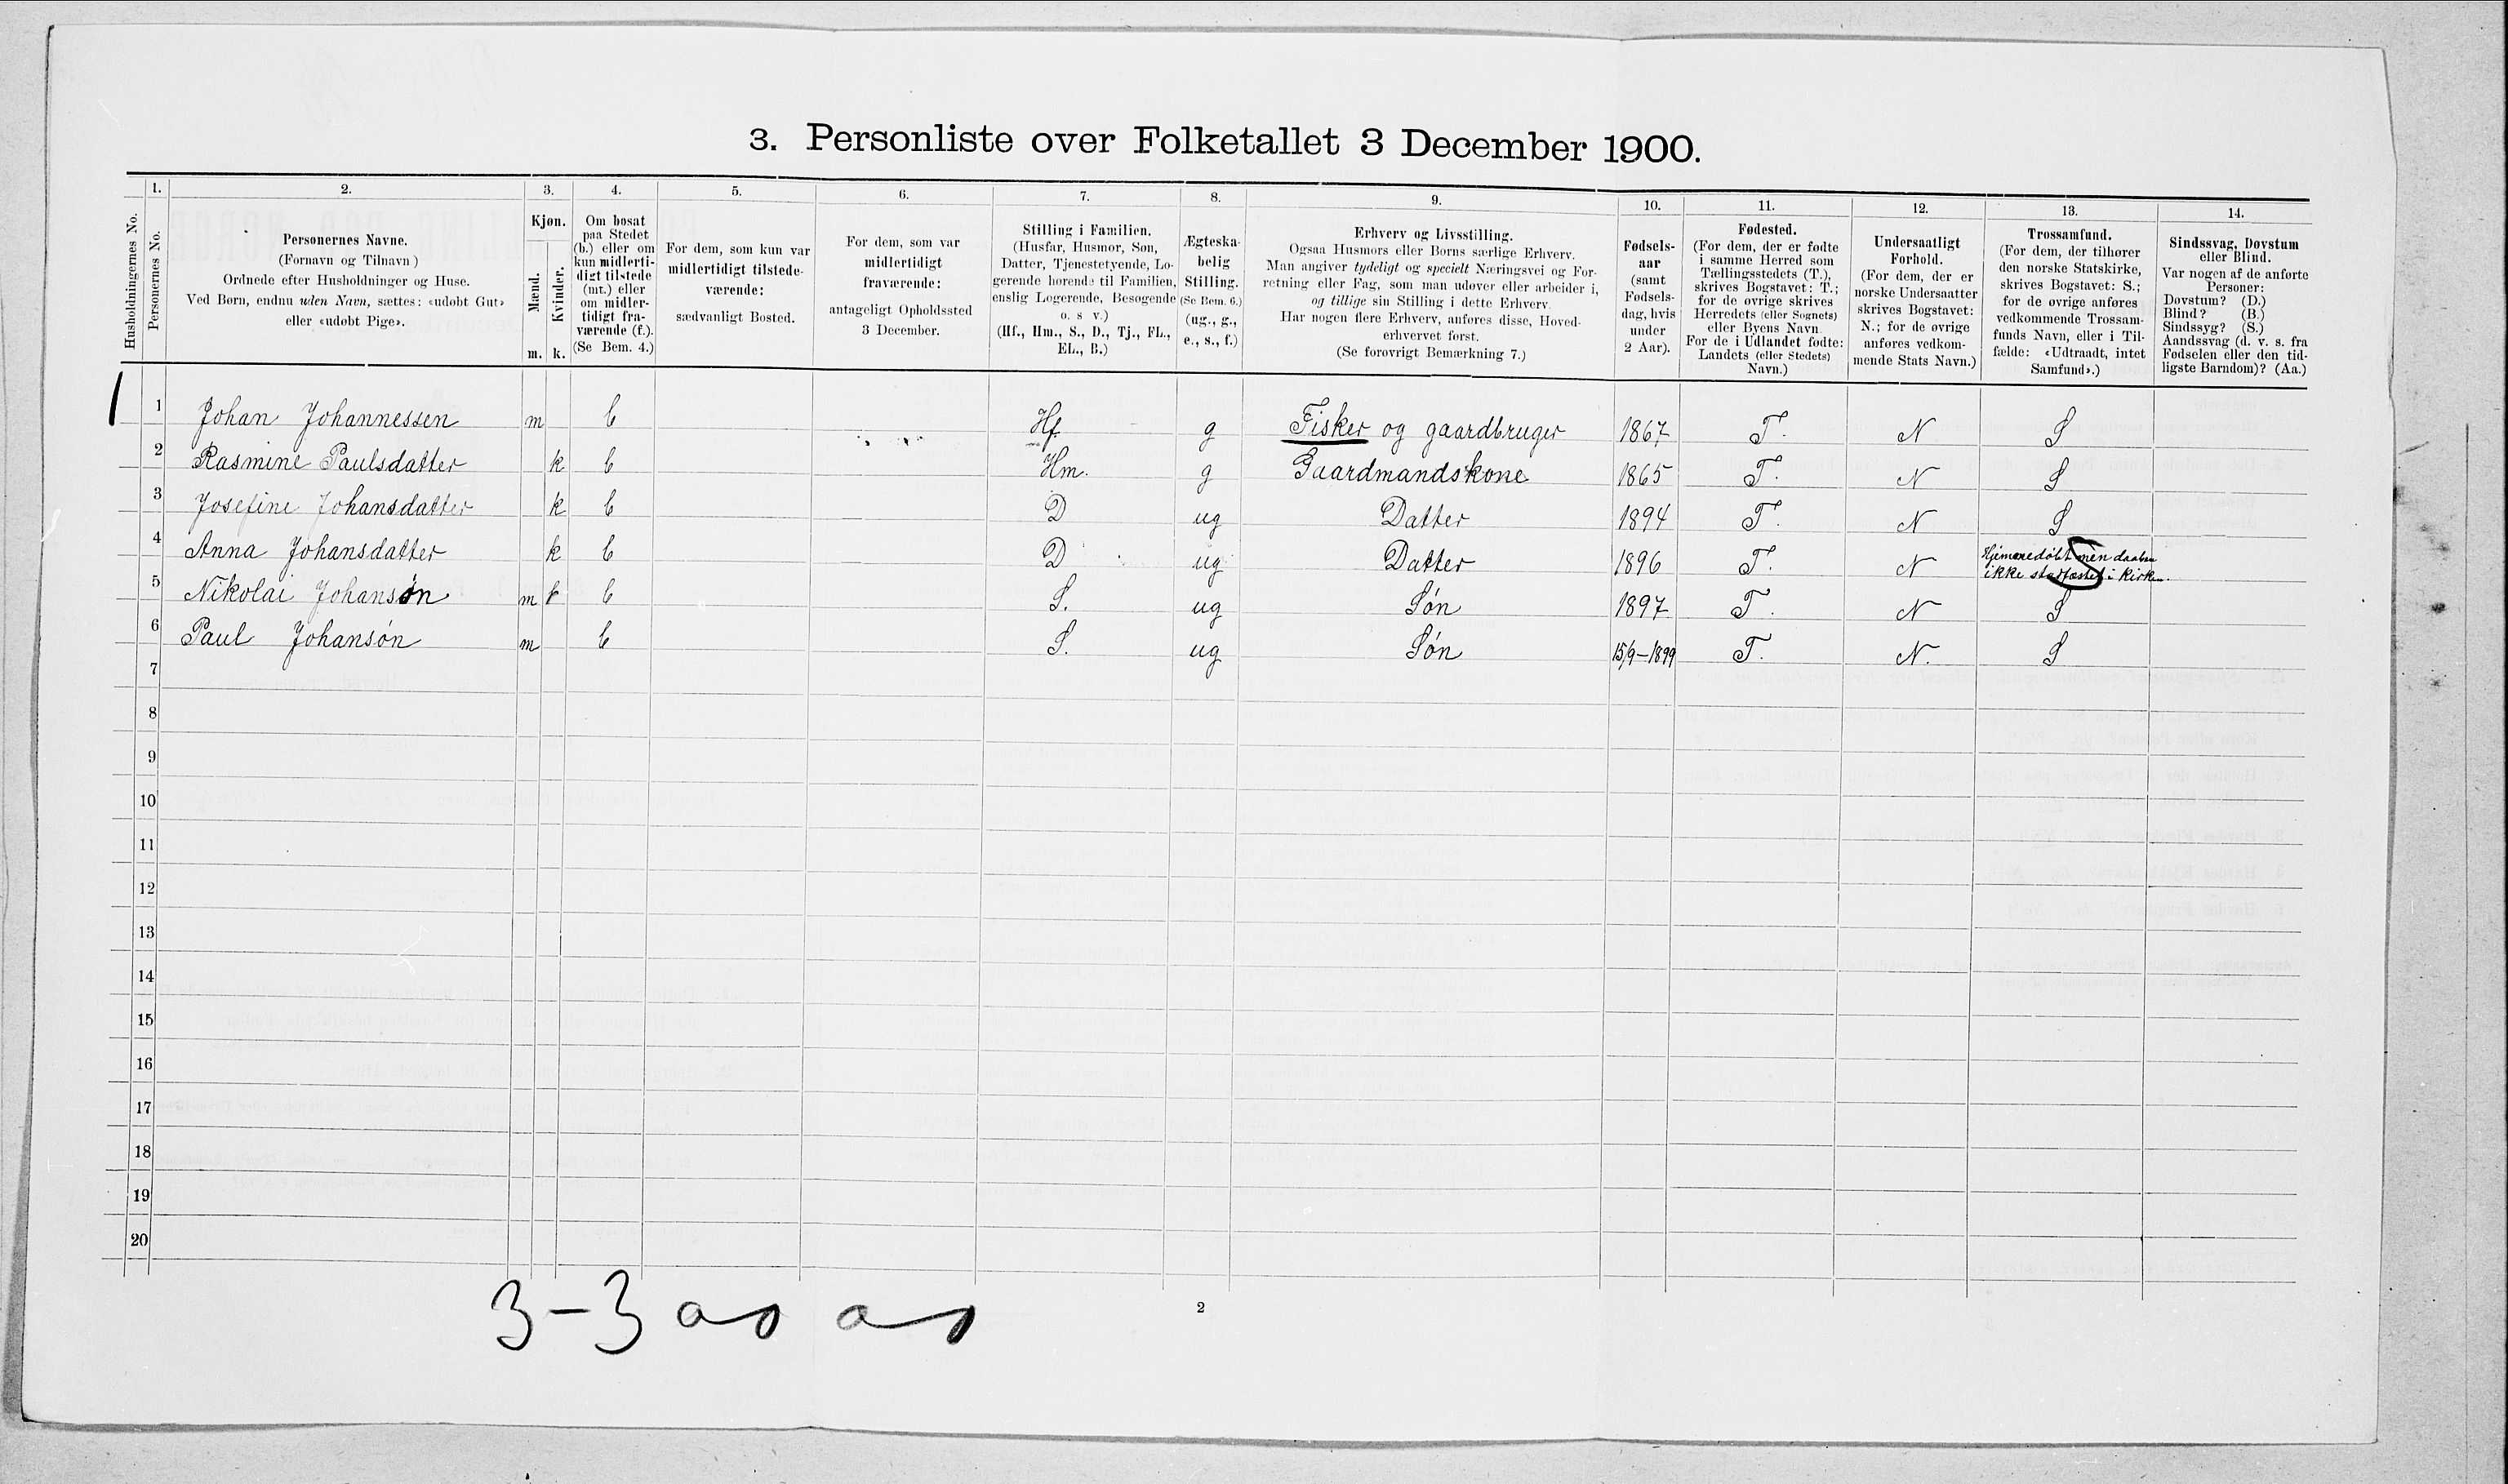 3. Personliste over Folketallet 3 December 1900.
1. 2. 3. 4. 5. 6. 7. 8. 9. 10. 11. 12. 13. 14.
Husholdningernes No.
Personernes No.
Personernes Navne.
(Fornavn og Tilnavn)
Ordnede efter Husholdninger og Huse.
Ved Børn, endnu uden Navn, sættes: «udøbt Gut»
eller «udøbt Pige».
Kjøn.
Mænd.
Kvinder.
m. k.
Om bosat
paa Stedet
(b.) eller om
kun midlerti-
digt tilstede
(mt.) eller
om midler-
tidigt fra-
værende (f.).
(Se Bem. 4.)
For dem, som kun var
midlertidigt tilstede-
værende:
sædvanligt Bosted.
For dem, som var
midlertidigt
fraværende:
antageligt Opholdssted
3 December.
Stilling i Familien.
(Husfar, Husmor, Søn,
Datter, Tjenestetyende, Lo-
gerende hørende til Familien,
enslig Logerende, Besøgende
o. s v.)
(Hf., Hm., S., D., Tj., FL.,
EL., B.)
Ægteska-
belig
Stilling.
(Se Bem. 6.)
(ug., g.,
e., s., f.)
Erhverv og Livsstilling.
Ogsaa Husmors eller Børns særlige Erhverv.
Man angiver tydeligt og specielt Næringsvei og For-
retning eller Fag, som man udøver eller arbeider i,
og tillige sin Stilling i dette Erhverv.
Har nogen flere Erhverv, anføres disse, Hoved-
erhvervet først.
(Se forøvrigt Bemærkning 7.)
Fødsels-
aar
(samt
Fødsels-
dag, hvis
under
2 Aar).
Fødested.
(For dem, der er fødte
i samme Herred som
Tællingsstedets (T.),
skrives Bogstavet: T.;
for de øvrige skrives
Herredets (eller Sognets)
eller Byens Navn.
For de i Udlandet fødte:
Landets (eller Stedets)
Navn.)
Undersaatligt
Forhold.
(For dem, der er
norske Undersaatter
skrives Bogstavet:
N.; for de øvrige
anføres vedkom-
mende Stats Navn.)
Trossamfund.
(For dem, der tilhører
den norske Statskirke,
skrives Bogstavet: S.;
for de øvrige anføres
vedkommende Trossam-
funds Navn, eller i Til-
fælde: «Udtraadt, intet
Samfund».)
Sindssvag, Døvstum
eller Blind.
Var nogen af de anførte
Personer:
Døvstum? (D.)
Blind? (B.)
Sindssyg? (S.)
Aandssvag (d. v. s. fra
Fødselen eller den tid-
ligste Barndom)? (Aa.)
1 1 Johan Johannessen m b Hf. g Fisker og gaardbruger 1867 T. N S
2 Rasmine Paulsdatter k b Hm. g Gaardmandskone 1865 T. N S
3 Josefine Johansdatter k b D ug Datter 1894 T. N S
4 Anna Johansdatter k b D ug Datter 1896 T. N Hjemmedøbt men daaben
ikke stadfæstet i kirken. S
5 Nikolai Johansøn m k b S. ug Søn 1897 T. N S
6 Paul Johansøn m b S. ug Søn 15/9-1899 T. N. S
7
8
9
10
11
12
13
14
15
16
17
18
19
20
3-3
2